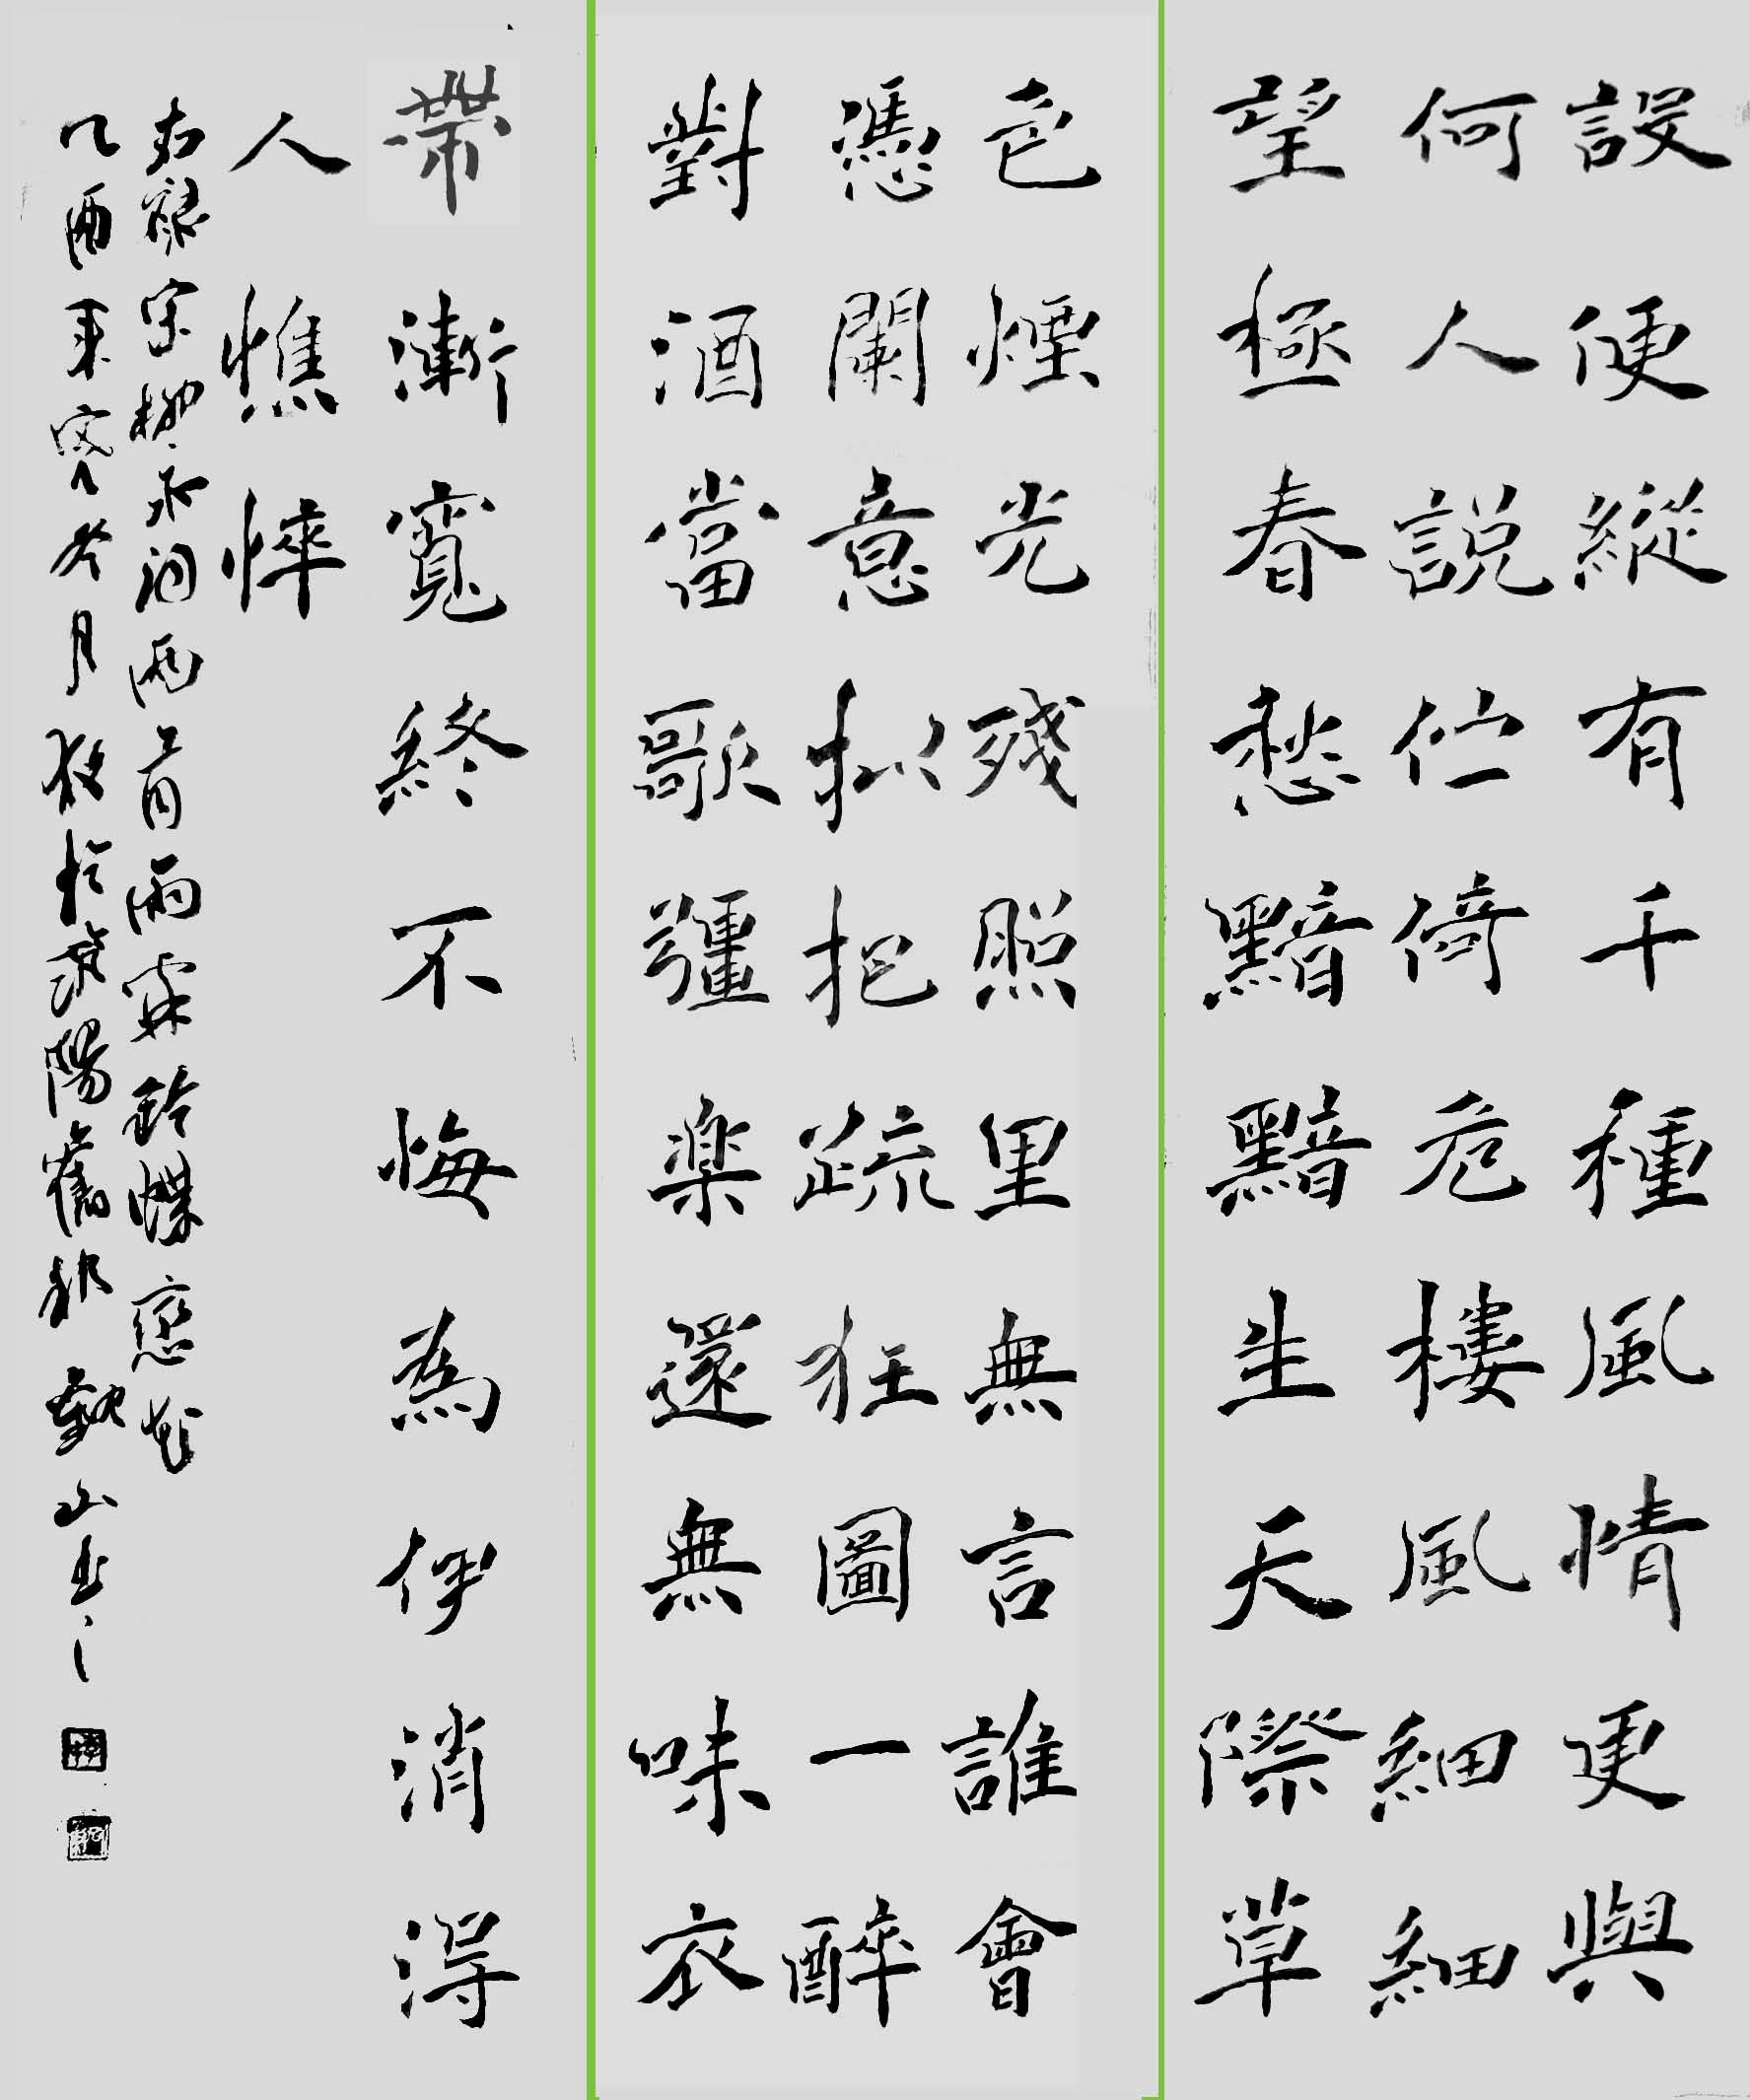 設便縱有千種風情更與
何人說伫倚危樓風細細
望極春愁黯黯生天際草
色煙光殘照里無言誰會
憑闌意拟把疏狂圖一醉
對酒當歌彊楽還無味衣
帶漸寬終不悔為伊消得
人憔悴
右録宋柳永詞兩首雨霖鈴蝶恋花
乙酉年 月 於 陽 山书